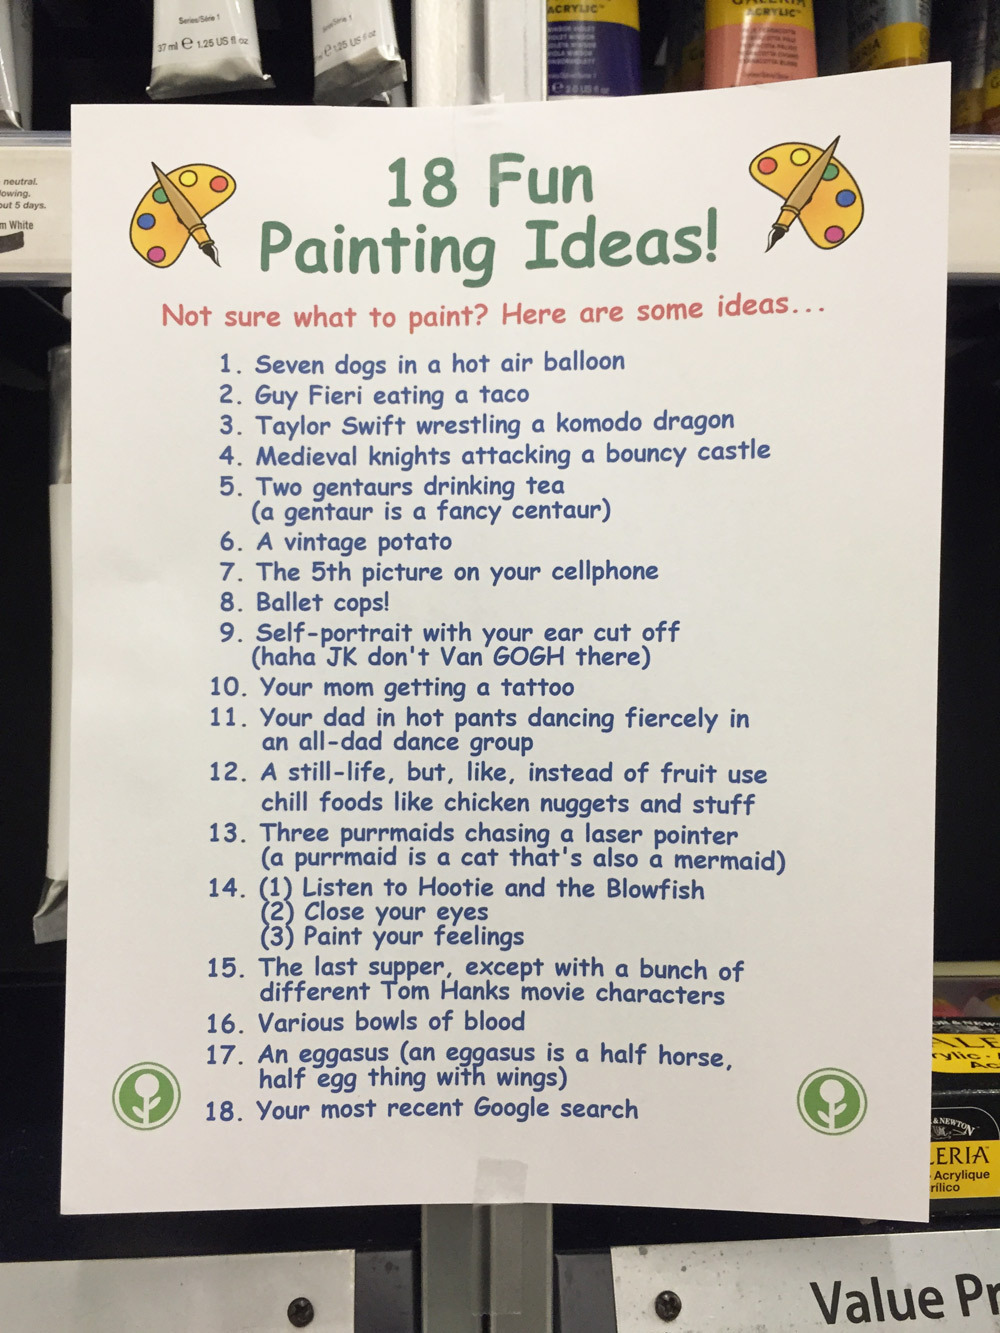 Series/Série 1
37 ml e 1.25 US fl oz
1.25 US fl oz
ACRYLIC
GALERIA
ACRYLIC
neutral.
lowing.
out 5 days.
m White
18 Fun
Painting Ideas!
Not sure what to paint? Here are some ideas...
1. Seven dogs in a hot air balloon
2. Guy Fieri eating a taco
3. Taylor Swift wrestling a komodo dragon
4. Medieval knights attacking a bouncy castle
5. Two gentaurs drinking tea
(a gentaur is a fancy centaur)
6. A vintage potato
7. The 5th picture on your cellphone
8. Ballet cops!
9. Self-portrait with your ear cut off
(haha JK don't Van GOGH there)
10. Your mom getting a tattoo
11. Your dad in hot pants dancing fiercely in
an all-dad dance group
12. A still-life, but, like, instead of fruit use
chill foods like chicken nuggets and stuff
13. Three purrmaids chasing a laser pointer
(a purrmaid is a cat that's also a mermaid)
14. (1) Listen to Hootie and the Blowfish
(2) Close your eyes
(3) Paint your feelings
15. The last supper, except with a bunch of
different Tom Hanks movie characters
16. Various bowls of blood
17. An eggasus (an eggasus is a half horse,
half egg thing with wings)
18. Your most recent Google search
& NEWTON
LERIA
Acrylique
rílico
Value Pr